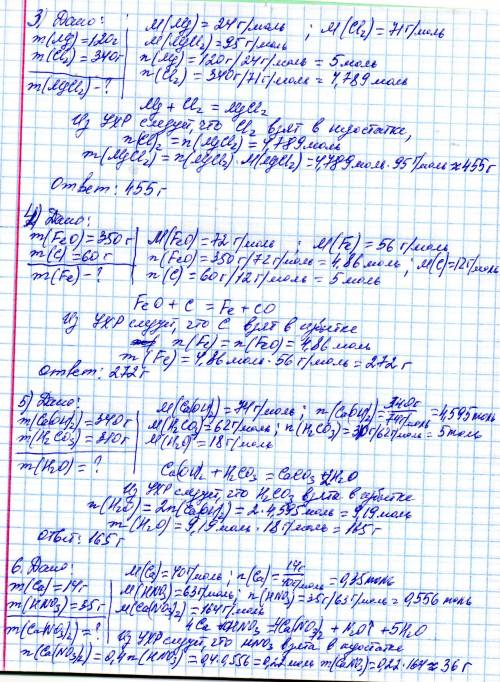 3) Дано:
m(Mg)=120г
m(Cl₂)=340г
m(MgCl₂)-?
M(Mg)=24г/моль ; M(Cl₂)=71г/моль
M(MgCl₂)=95г/моль
n(Mg)=120г/24г/моль=5моль
n(Cl₂)=340г/71г/моль=4,789моль
Mg+Cl₂=MgCl₂
Из УХР следует, что Cl₂ взят в недостатке,
n(Cl₂)=n(MgCl₂)=4,789моль
m(MgCl₂)=n(MgCl₂)·M(MgCl₂)=4,789моль·95г/моль≈455г
Ответ: 455г
4) Дано:
m(FeO)=350г
m(C)=60г
m(Fe)-?
M(FeO)=72г/моль ; M(Fe)=56г/моль
n(FeO)=350г/72г/моль=4,86моль ; M(C)=12г/моль
n(C)=60г/12г/моль=5моль
FeO+C=Fe+CO
Из УХР следует, что C взят в избытке
n(Fe)=n(FeO)=4,86моль
m(Fe)=4,86моль·56г/моль=272г
Ответ: 272г
5) Дано:
m(Ca(OH)₂)=340г
m(H₂CO₃)=310г
m(H₂O)=?
M(Ca(OH)₂)=74г/моль ; n(Ca(OH)₂)=340г/74г/моль=4,595моль
M(H₂CO₃)=62г/моль ; n(H₂CO₃)=310г/62г/моль=5моль
M(H₂O)=18г/моль
Ca(OH)₂+H₂CO₃=CaCO₃+2H₂O
Из УХР следует, что H₂CO₃ взята в избытке
n(H₂O)=2n(Ca(OH)₂)=2·4,595моль=9,19моль
m(H₂O)=9,19моль·18г/моль=165г
Ответ: 165г
6. Дано:
m(Ca)=14г
m(HNO₃)=35г
m(Ca(NO₃)₂)=?
M(Ca)=40г/моль ; n(Ca)=14г/40г/моль=0,35моль
M(HNO₃)=63г/моль ; n(HNO₃)=35г/63г/моль=0,556моль
M(Ca(NO₃)₂)=164г/моль
4Ca+10HNO₃=4Ca(NO₃)₂+N₂O↑+5H₂O
Из УХР следует, что HNO₃ взята в недостатке
n(Ca(NO₃)₂)=0,4n(HNO₃)=0,4·0,556=0,22моль m(CaNO₃)₂=0,22·164≈36г